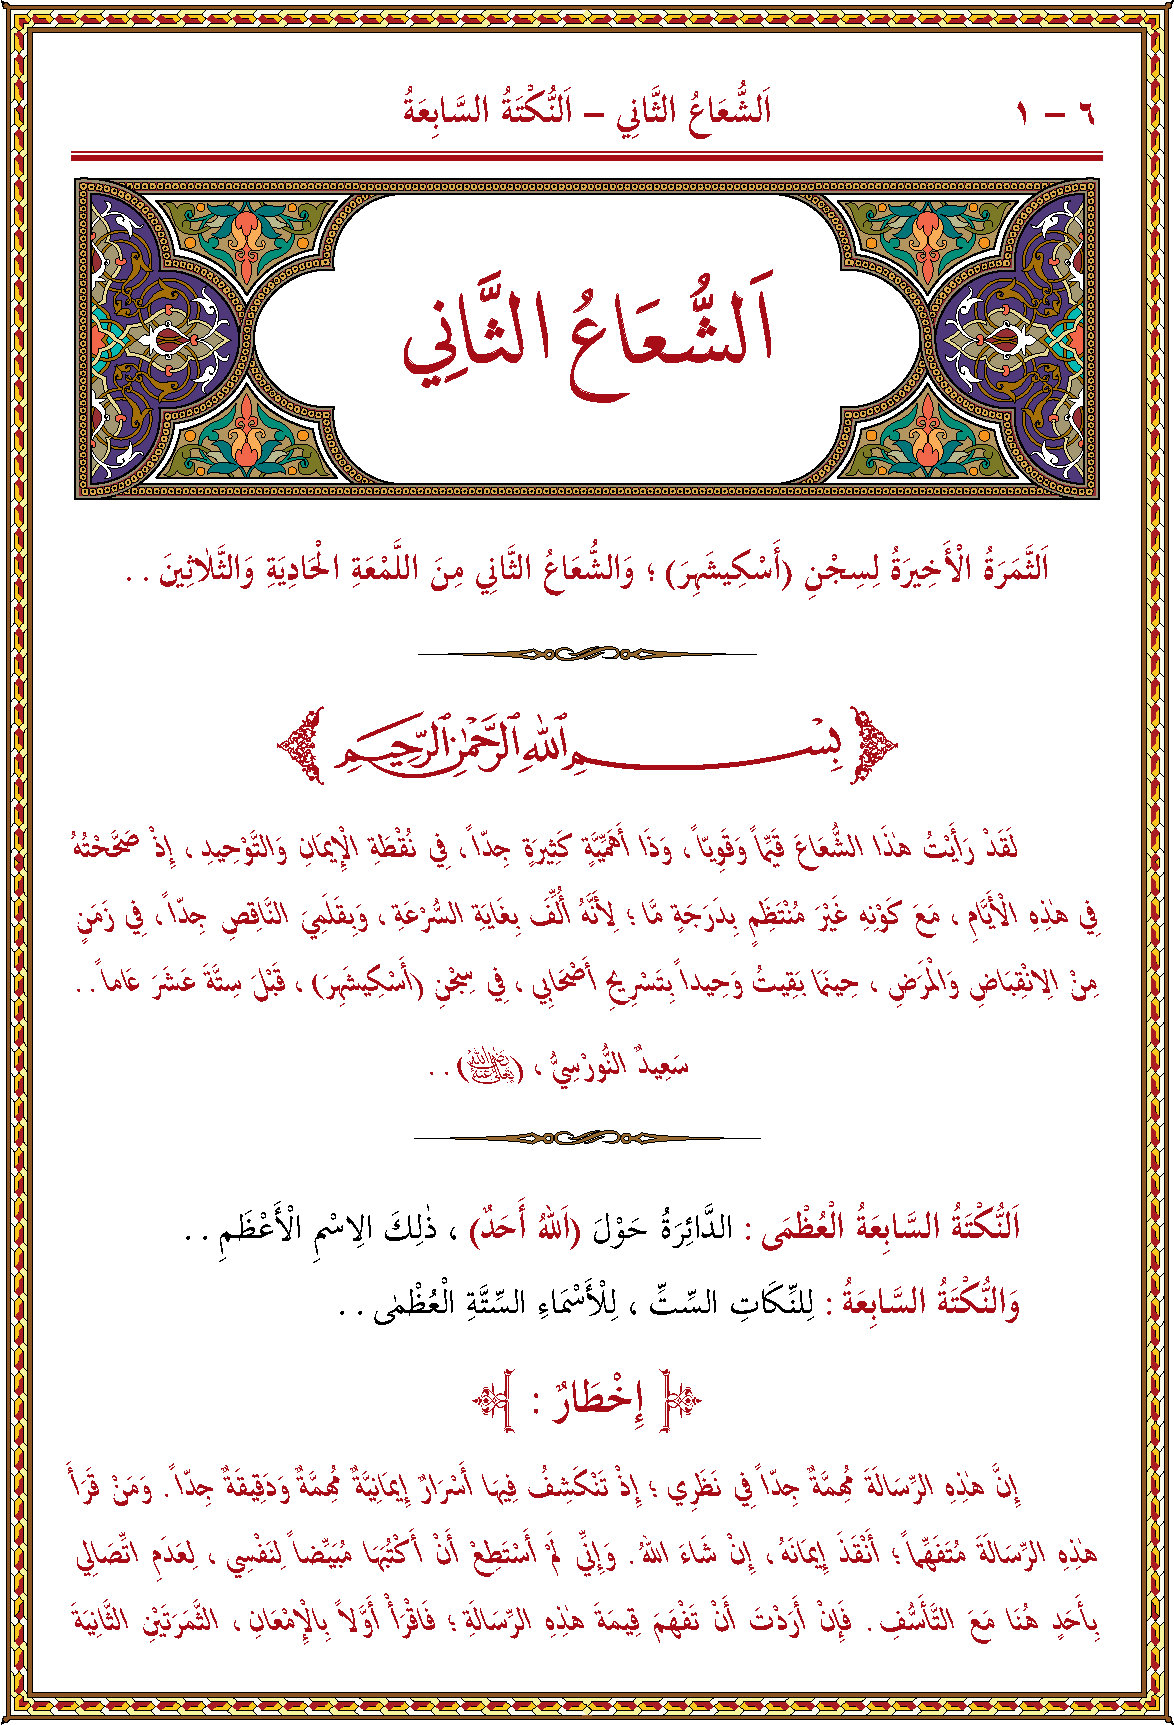 ٦ – ١
اَلشُّعَاعُ الثَّانِي – اَلنُّكْتَةُ السَّابِعَةُ
اَلشُّعَاعُ الثَّانِي
اَلثَّمَرَةُ الْأَخِيرَةُ لِسِجْنِ (أَسْكِيشَهِرَ) ؛ وَالشُّعَاعُ الثَّانِي مِنَ اللَّمْعَةِ الْحَادِيَةِ وَالثَّلاٰثِينَ . .
بِسْمِ اللّٰهِ الرَّحْمٰنِ الرَّحِيمِ
لَقَدْ رَأَيْتُ هٰذَا الشُّعَاعَ قَيِّماً وَقَوِيّاً ، وَذَا أَهَمِّيَّةٍ كَثِيرَةٍ جِدّاً ، فِي نُقْطَةِ الْإِيمَانِ وَالتَّوْحِيدِ ، إِذْ صَحَّحْتُهُ
فِي هٰذِهِ الْأَيَّامِ ، مَعَ كَوْنِهِ غَيْرَ مُنْتَظِمٍ بِدَرَجَةٍ مَّا ؛ لِأَنَّهُ أُلِّفَ بِغَايَةِ السُّرْعَةِ ، وَبِقَلَمِيَ النَّاقِصِ جِدّاً ، فِي زَمَنٍ
مِنْ الِانْقِبَاضِ وَالْمَرَضِ ، حِينَمَا بَقِيتُ وَحِيداً بِتَسْرِيحِ أَصْحَابِي ، فِي سِجْنِ (أَسْكِيشَهِرَ) ، قَبْلَ سِتَّةَ عَشَرَ عَاماً . .
سَعِيدٌ النُّورْسِيُّ ، (رَضِيَ اللّٰهُ تَعَالٰى عَنْهُ) . .
اَلنُّكْتَةُ السَّابِعَةُ الْعُظْمَى : الدَّائِرَةُ حَوْلَ (اَللّٰهُ أَحَدٌ) ، ذٰلِكَ الِاسْمِ الْأَعْظَمِ . .
وَالنُّكْتَةُ السَّابِعَةُ : لِلنِّكَاتِ السِّتِّ ، لِلْأَسْمَاءِ السِّتَّةِ الْعُظْمٰى . .
إِخْطَارٌ :
إِنَّ هٰذِهِ الرِّسَالَةَ مُهِمَّةٌ جِدّاً فِي نَظَرِي ؛ إِذْ تَنْكَشِفُ فِيهَا أَسْرَارٌ إِيمَانِيَّةٌ مُهِمَّةٌ وَدَقِيقَةٌ جِدّاً . وَمَنْ قَرَأَ
هٰذِهِ الرِّسَالَةَ مُتَفَهِّماً ؛ أَنْقَذَ إِيمَانَهُ ، إِنْ شَاءَ اللّٰهُ . وَإِنِّي لَمْ أَسْتَطِعْ أَنْ أَكْتُبَهَا مُبَيِّضاً لِنَفْسِي ، لِعَدَمِ اتِّصَالِي
بِأَحَدٍ هُنَا مَعَ التَّأَسُّفِ . فَإِنْ أَرَدْتَ أَنْ تَفْهَمَ قِيمَةَ هٰذِهِ الرِّسَالَةِ ؛ فَاقْرَأْ أَوَّلاً بِالْإِمْعَانِ ، الثَّمَرَتَيْنِ الثَّانِيَةَ